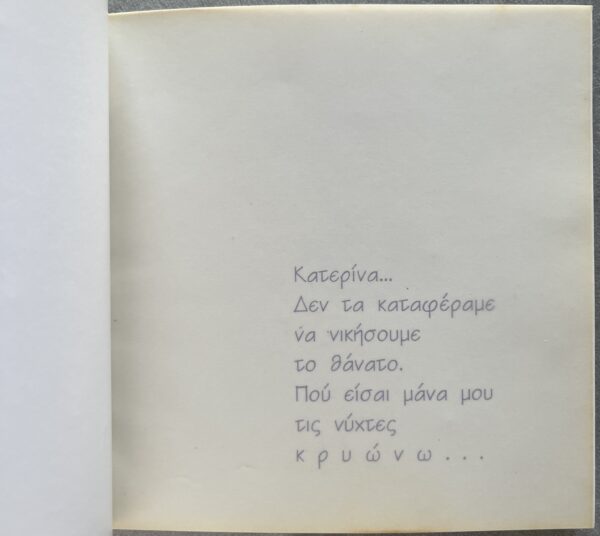 Κατερίνα...
Δεν τα καταφέραμε
να νικήσουμε
το θάνατο.
Πού είσαι μάνα μου
τις νύχτες
κ ρ υ ώ ν ω . . .